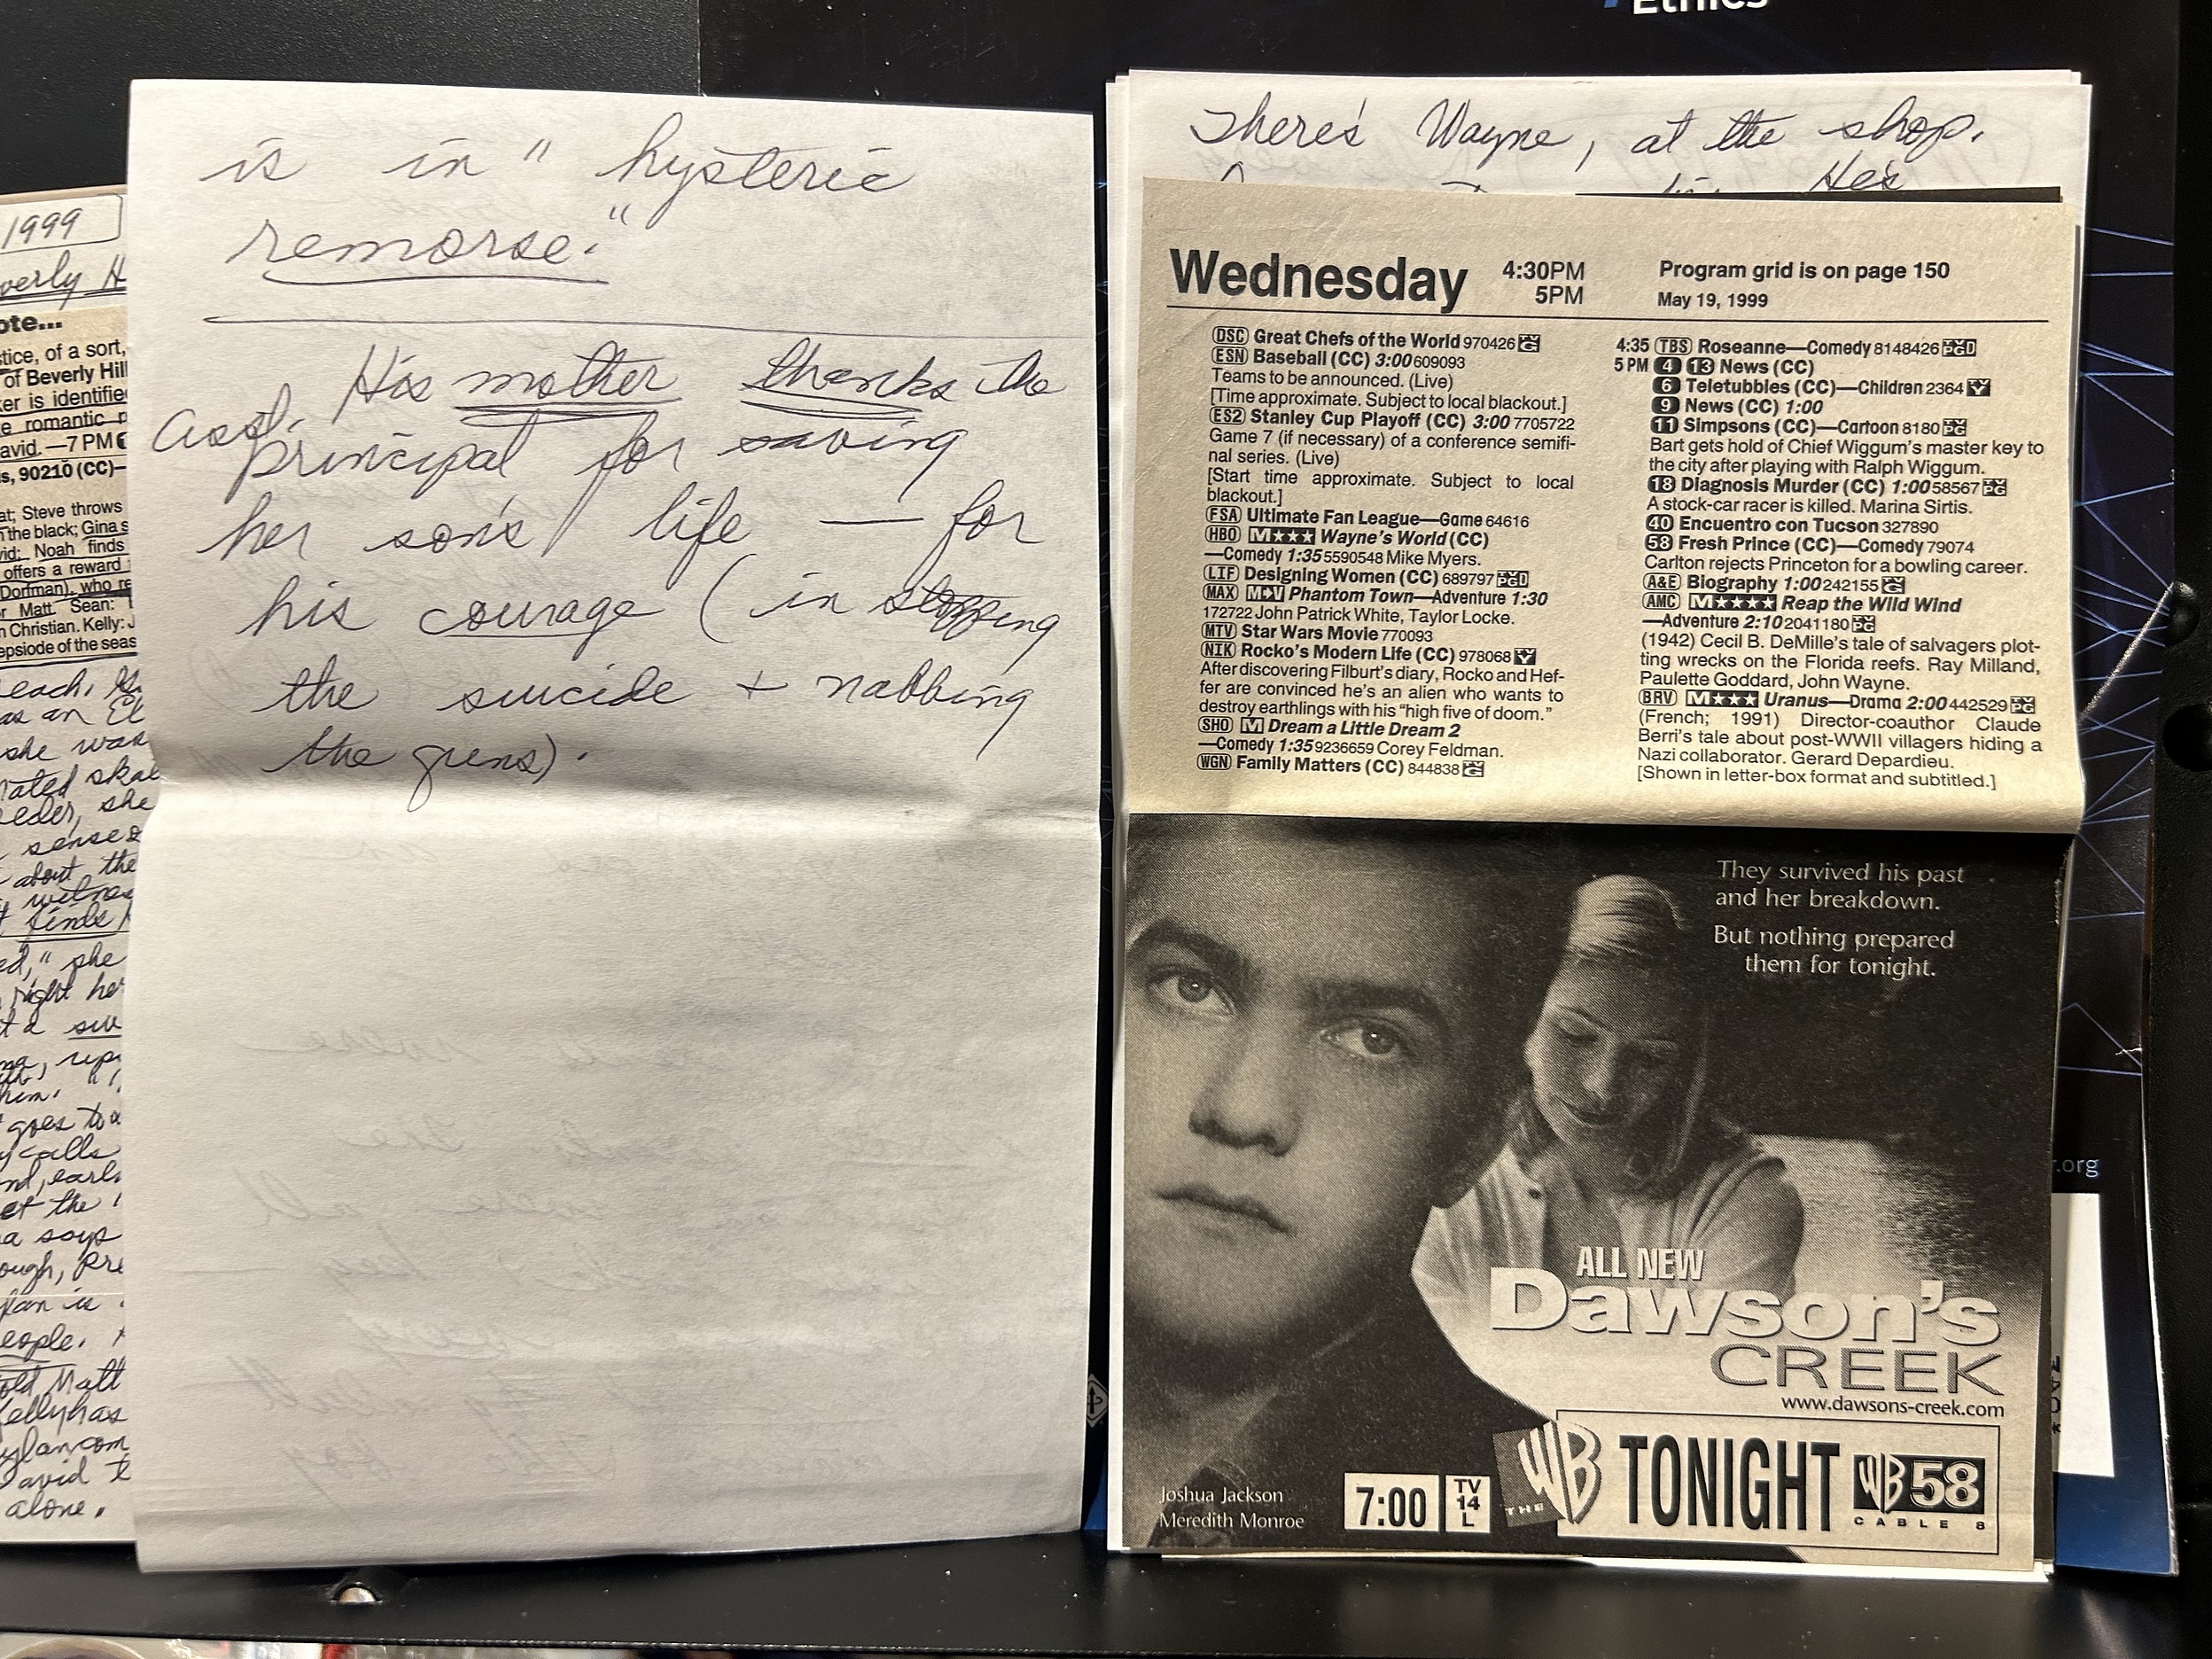 Ethics
1999
verly H
ote...
stice, of a sort,
of Beverly Hill
ker is identifie
te romantic p
avid. —7 PM
s, 90210 (CC)—
at; Steve throws
n the black; Gina s
vid; Noah finds
offers a reward
Dorfman), who re
r Matt. Sean:
n Christian. Kelly: J
epsiode of the seas
each.
as an El
she was
nated skat
eeder, she
senses
about the
witnes
finds
ed," she
right her
at a
goes to a
calls
nd, earl
at the
a says
ough, Pre
plan is
eople.
old Matt
Kelly has
ylan com
avid t
alone.
is in "hysteric
remorse."
His mother thanks the
asst.
principal for saving
her son's life — for
his courage (in stopping
the suicide + nabbing
the guns).
There's Wayne, at the shop.
He's
Wednesday 4:30PM
5PM
Program grid is on page 150
May 19, 1999
DSC Great Chefs of the World 970426 G
ESN Baseball (CC) 3:00 609093
Teams to be announced. (Live)
[Time approximate. Subject to local blackout.]
ES2 Stanley Cup Playoff (CC) 3:00 7705722
Game 7 (if necessary) of a conference semifi-
nal series. (Live)
[Start time approximate. Subject to local
blackout.]
FSA Ultimate Fan League—Game 64616
HBO M★★★ Wayne's World (CC)
—Comedy 1:35 5590548 Mike Myers.
LIF Designing Women (CC) 689797 PGD
MAX M▸V Phantom Town—Adventure 1:30
172722 John Patrick White, Taylor Locke.
MTV Star Wars Movie 770093
NIK Rocko's Modern Life (CC) 978068 Y
After discovering Filburt's diary, Rocko and Hef-
fer are convinced he's an alien who wants to
destroy earthlings with his "high five of doom."
SHO M Dream a Little Dream 2
—Comedy 1:35 9236659 Corey Feldman.
WGN Family Matters (CC) 844838 G
4:35 TBS Roseanne—Comedy 8148426 PGD
5 PM 4 13 News (CC)
6 Teletubbies (CC)—Children 2364 Y
9 News (CC) 1:00
11 Simpsons (CC)—Cartoon 8180 PG
Bart gets hold of Chief Wiggum's master key to
the city after playing with Ralph Wiggum.
18 Diagnosis Murder (CC) 1:00 58567 PG
A stock-car racer is killed. Marina Sirtis.
40 Encuentro con Tucson 327890
58 Fresh Prince (CC)—Comedy 79074
Carlton rejects Princeton for a bowling career.
A&E Biography 1:00 242155 G
AMC M★★★★ Reap the Wild Wind
—Adventure 2:10 2041180 PG
(1942) Cecil B. DeMille's tale of salvagers plot-
ting wrecks on the Florida reefs. Ray Milland,
Paulette Goddard, John Wayne.
BRV M★★★ Uranus—Drama 2:00 442529
(French; 1991) Director-coauthor Claude
Berri's tale about post-WWII villagers hiding a
Nazi collaborator. Gerard Depardieu.
[Shown in letter-box format and subtitled.]
They survived his past
and her breakdown.
But nothing prepared
them for tonight.
ALL NEW
Dawson's
CREEK
www.dawsons-creek.com
Joshua Jackson
Meredith Monroe
7:00 TV
14
L
THE WB TONIGHT WB 58
CABLE 8
r.org